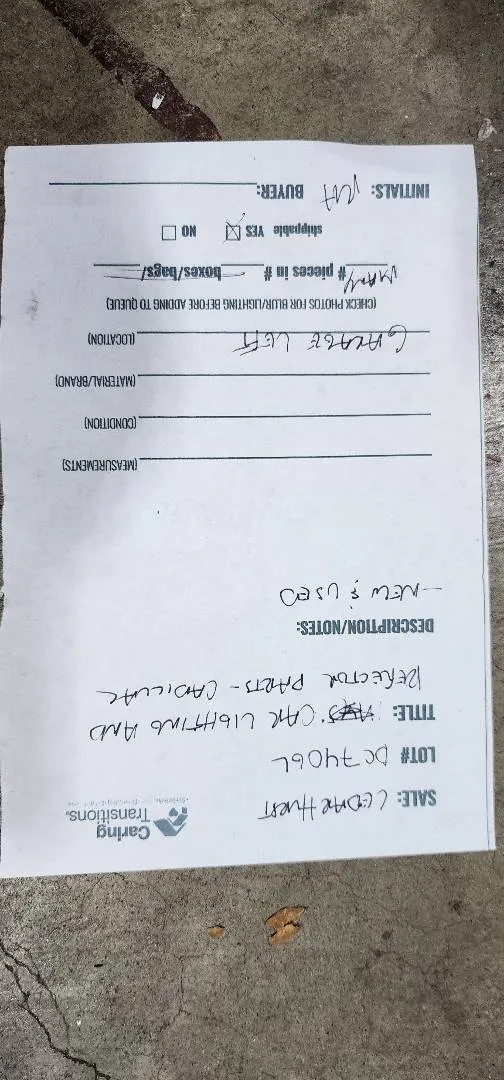 Caring
Transitions.
SALE: CEDARHURST
LOT# DC7406L
TITLE: CAR LIGHTING AND
REFLECTOR PARTS - CADILLAC
DESCRIPTION/NOTES:
- NEW & USED
(MEASUREMENTS)
(CONDITION)
(MATERIAL/BRAND)
GARAGE LEFT (LOCATION)
(CHECK PHOTOS FOR BLUR/LIGHTING BEFORE ADDING TO QUEUE)
MANY # pieces in # boxes/bags/
shippable YES NO
INITIALS: BUYER: